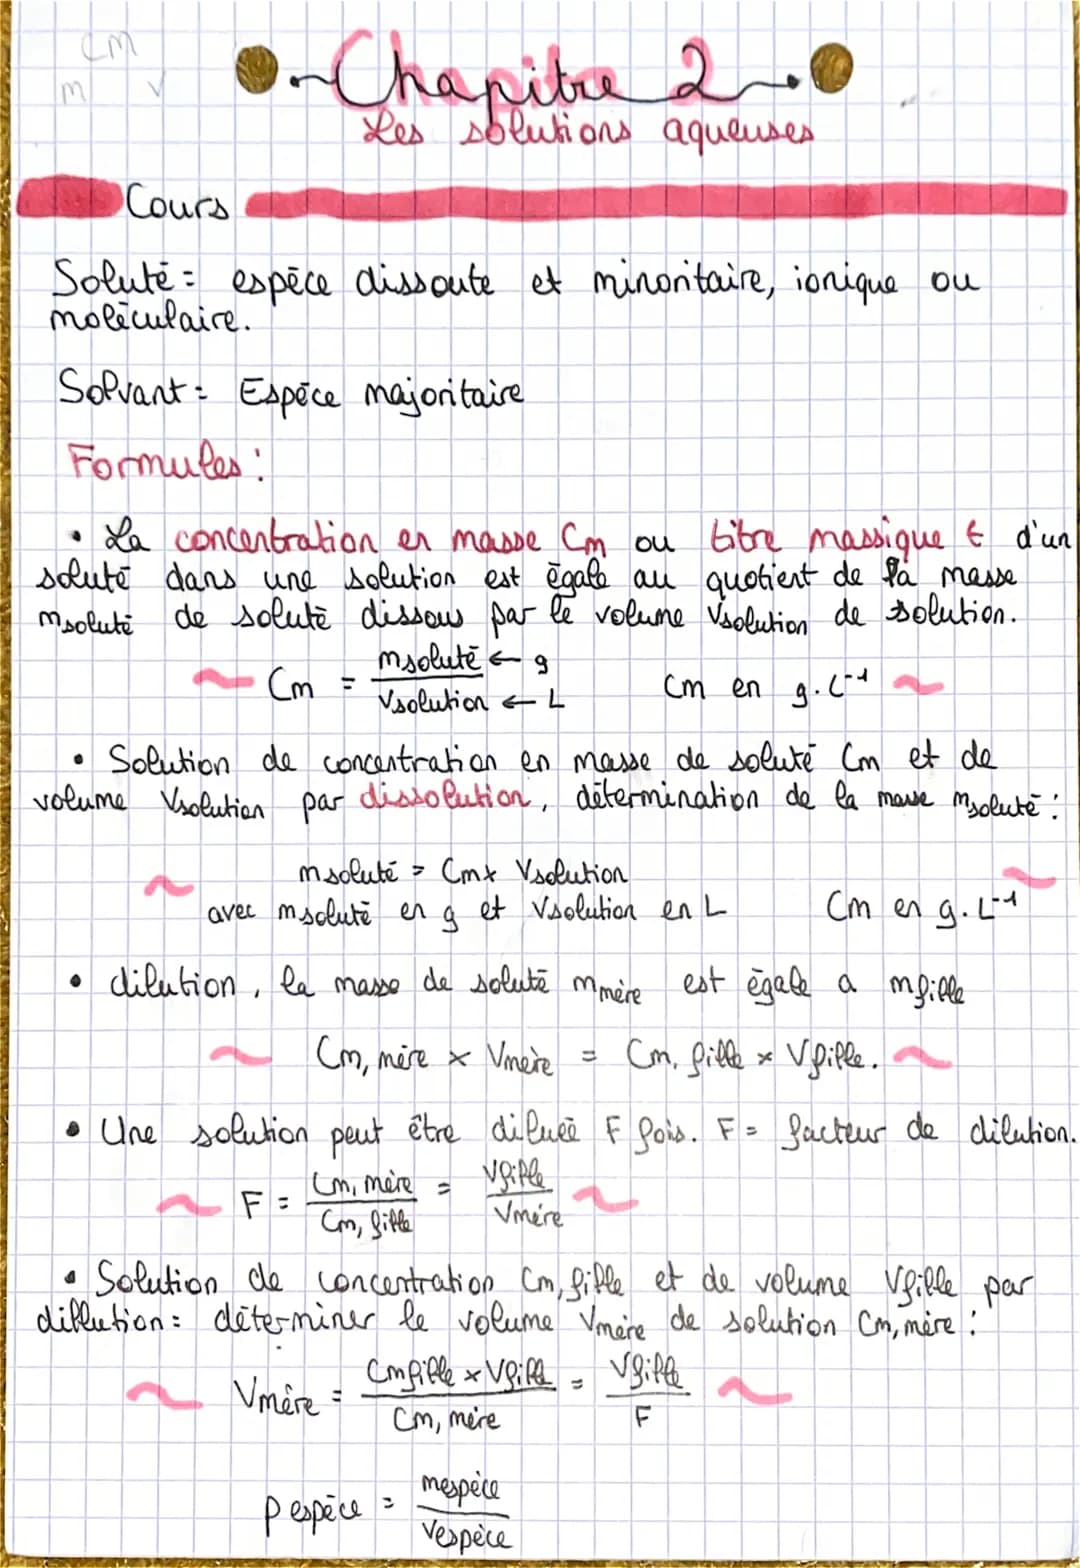 Cm
m V
Chapitre 2
Les solutions aqueuses
Cours
Soluté = espēce dissoute et minoritaire, ionique ou
molēculaire.
Solvant = Espēce majoritaire
Formules :
• La concentration en masse Cm ou titre massique t d'un
soluté dans une solution est ēgale au quotient de la masse
msoluté de soluté dissous par le volume Vsolution de solution.
~ Cm = msoluté ← g / Vsolution ← L Cm en g.L⁻¹ ~
• Solution de concentration en masse de soluté Cm et de
volume Vsolution par dissolution, détermination de la masse msoluté :
msoluté = Cm x Vsolution
~ avec msoluté en g et Vsolution en L Cm en g.L⁻¹ ~
• dilution, la masse de soluté mmère est ēgale a mfille
~ Cm, mère x Vmère = Cm, fille x Vfille. ~
• Une solution peut être diluée F fois. F = facteur de dilution.
~ F = Cm, mère / Cm, fille = Vfille / Vmère ~
• Solution de concentration Cm, fille et de volume Vfille par
dillution : déterminer le volume Vmère de solution Cm, mère :
~ Vmère = Cmfille x Vfille / Cm, mère = Vfille / F ~
ρ espēce = mespèce / Vespèce